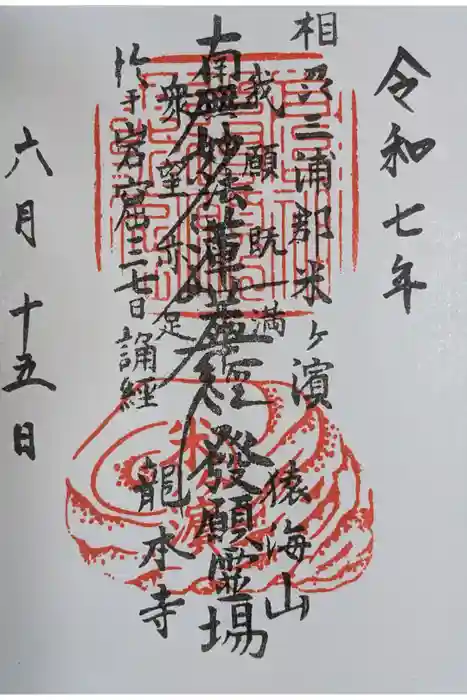 令和七年
相州三浦郡米ヶ濱
猿海山
我願既満
南無妙法蓮華経 發願霊場
衆望亦足
龍本寺
於于岩窟三七日誦経
六月十五日